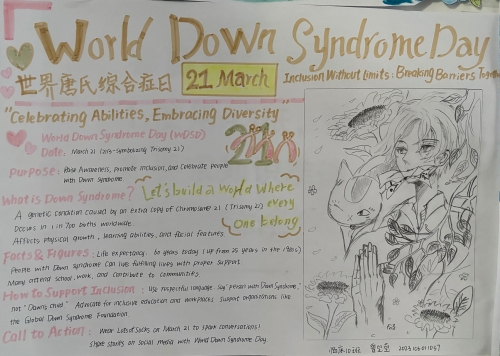 World Down Syndrome Day
世界唐氏综合症日 21 March Inclusion Without Limits: Breaking Barriers
"Celebrating Abilities, Embracing Diversity"
World Down Syndrome Day (WDSD)
Date: March 21 (3/21-Symbolizing Trisomy 21)
21
Purpose: Raise Awareness, promote inclusion, and celebrate people
with Down Syndrome.
What is Down Syndrome?
Let's build a World Where
every
One belong
A genetic condition caused by an extra copy of chromosome 21 (Trisomy 21)
Occurs in 1 in 700 births worldwide.
Affects physical growth, learning abilities, and facial features.
Facts & Figures: Life expectancy: 60 years today (up from 25 years in the 1980s)
People with Down syndrome can live fulfilling lives with proper support
Many attend school, work, and contribute to communities.
How to Support Inclusion: Use respectful language say "person with Down Syndrome,"
not "Down's child." Advocate for inclusive education and workplaces. Support organizations like
the Global Down Syndrome Foundation.
Call to Action: Wear Lots of Socks on March 21 to spark conversations!
Share stories on social media with World Down Syndrome Day.
临床10班